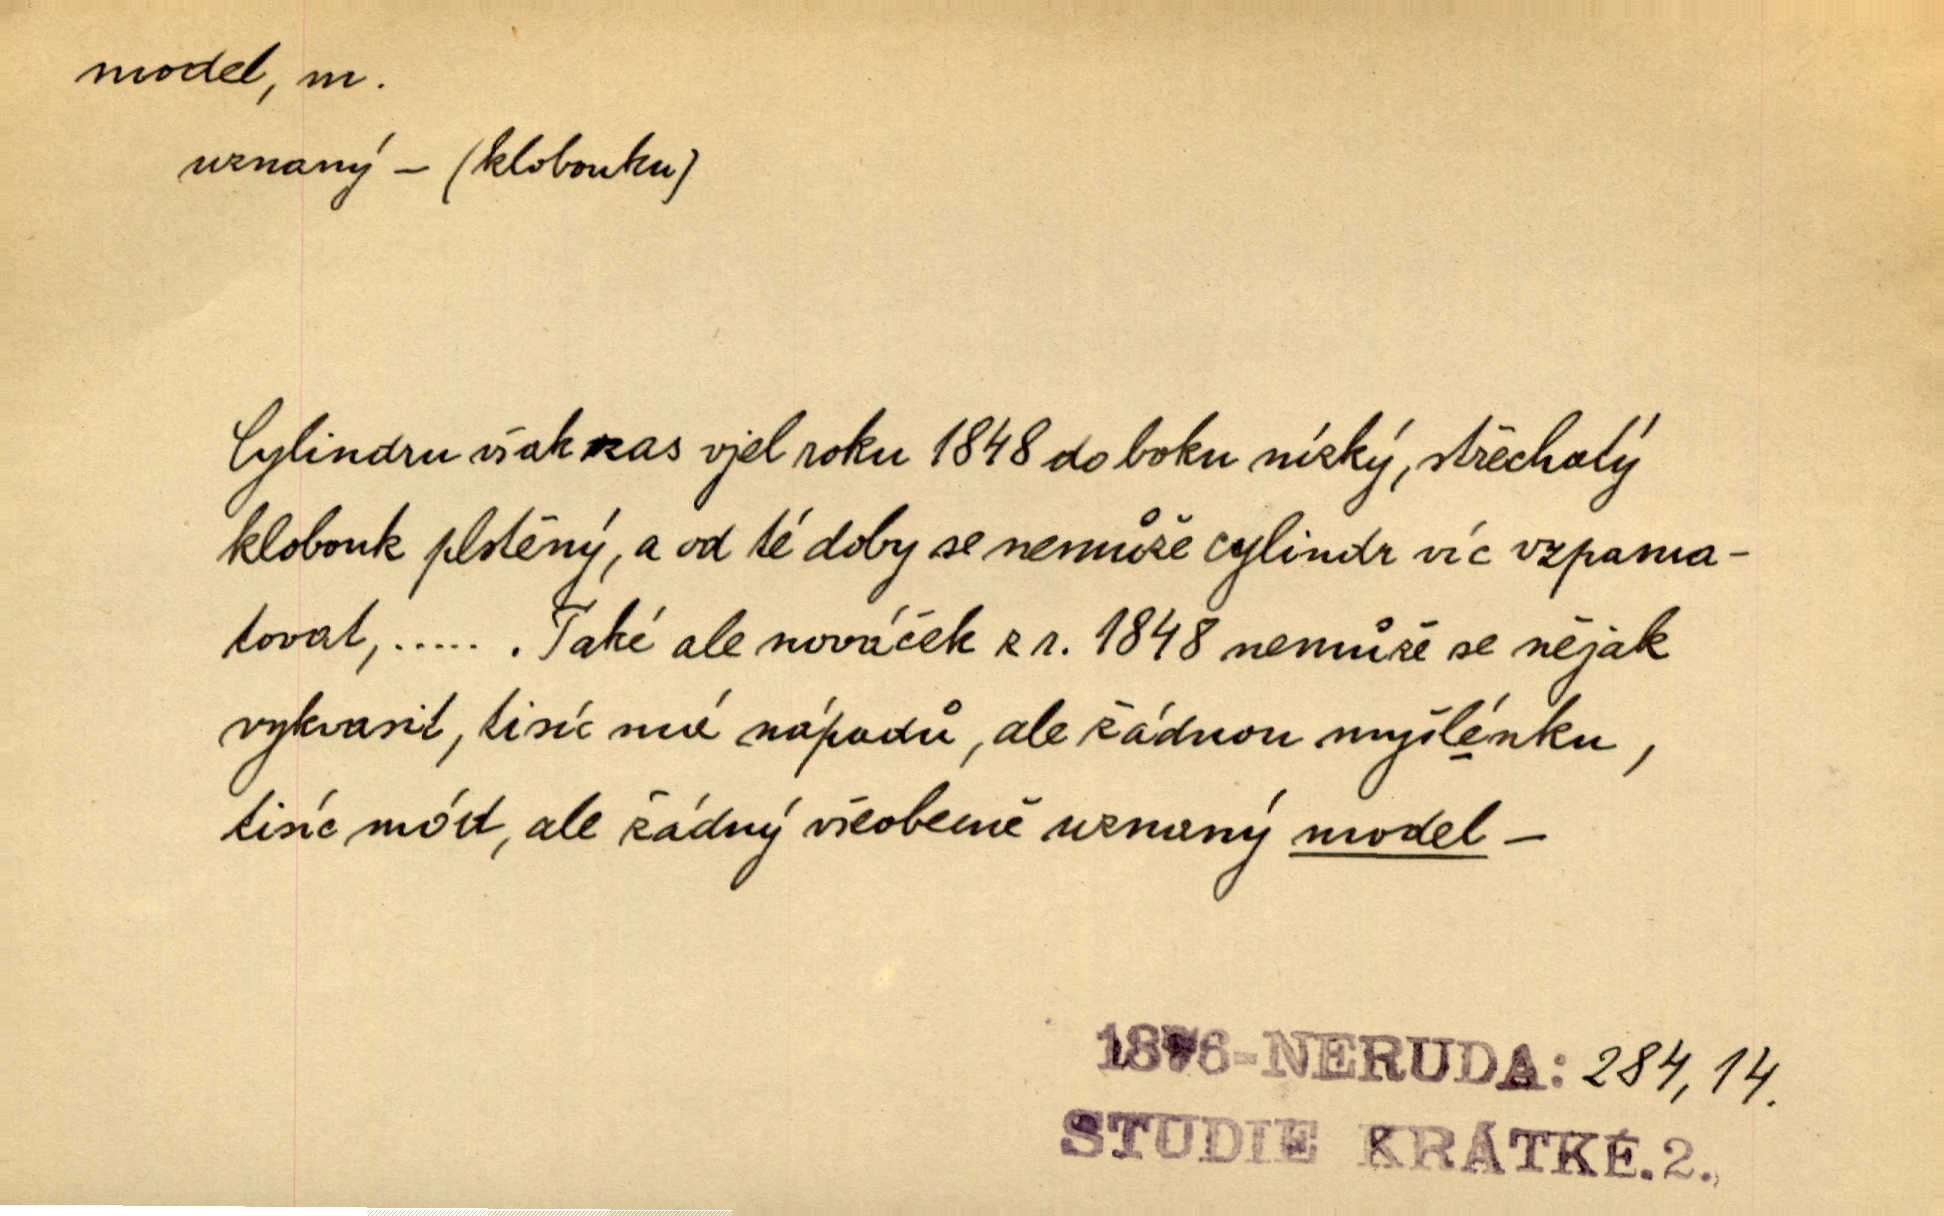 model, m.
uznaný – (klobouku)
Cylindru však zas vjel roku 1848 do boku nízký, střechatý
klobouk plstěný, a od té doby se nemůže cylindr víc vzpama-
tovat, ..... . Také ale nováček z r. 1848 nemůže se nějak
vykvasit, tisíc má nápadů, ale žádnou myšlénku,
tisíc mód, ale žádný všeobecně uznaný model –
1876-NERUDA: 284, 14.
STUDIE KRÁTKÉ. 2.,